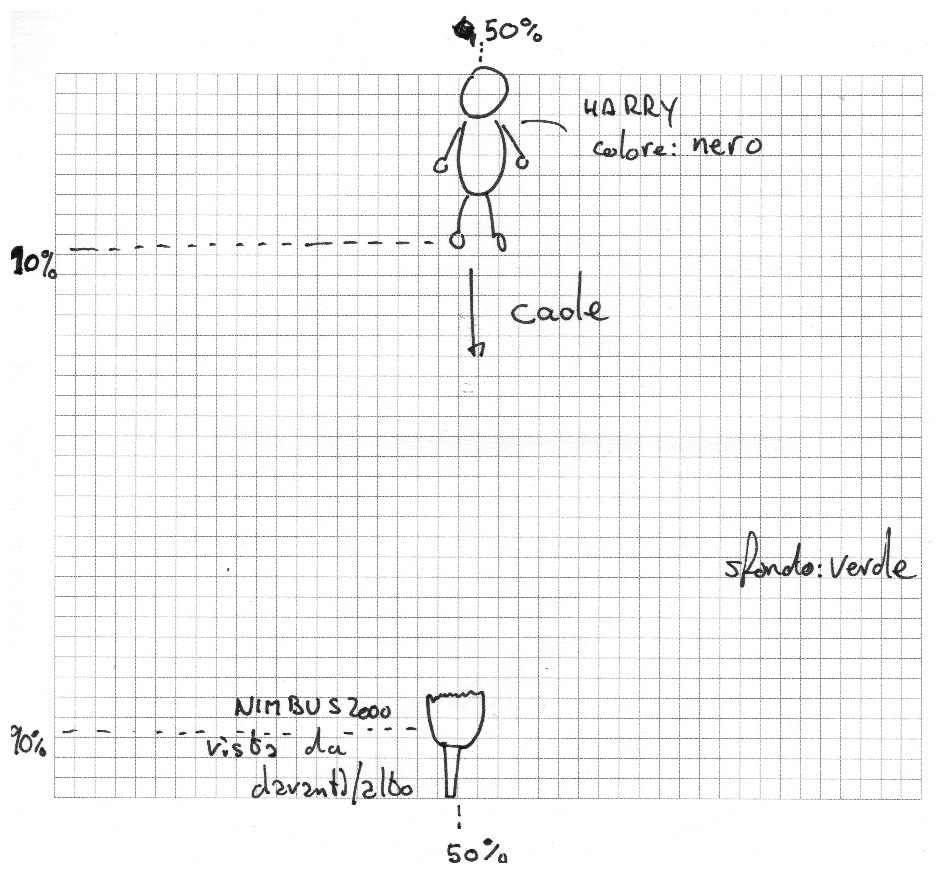 50%
HARRY
colore: nero
10%
cade
sfondo: verde
NIMBUS2000
90%
vista da
davanti/alto
50%